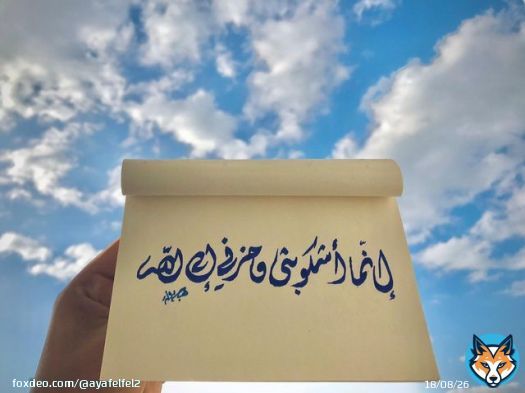 إنما أشكو بثي وحزني إلى الله
foxdeo.com/@ayafelfel2
18/08/26